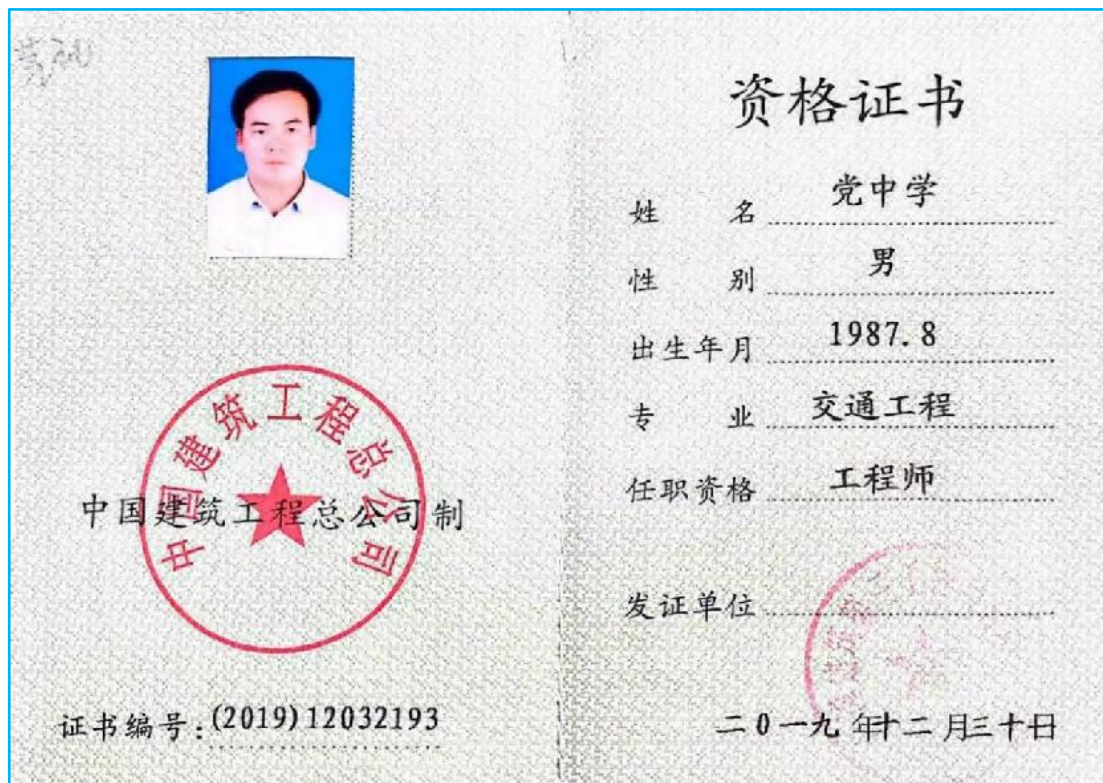 中国建筑工程总公司
中国建筑工程总公司制
证书编号:(2019)12032193
资格证书
姓 名 党中学
性 别 男
出生年月 1987.8
专 业 交通工程
任职资格 工程师
发证单位
二0一九年十二月三十日